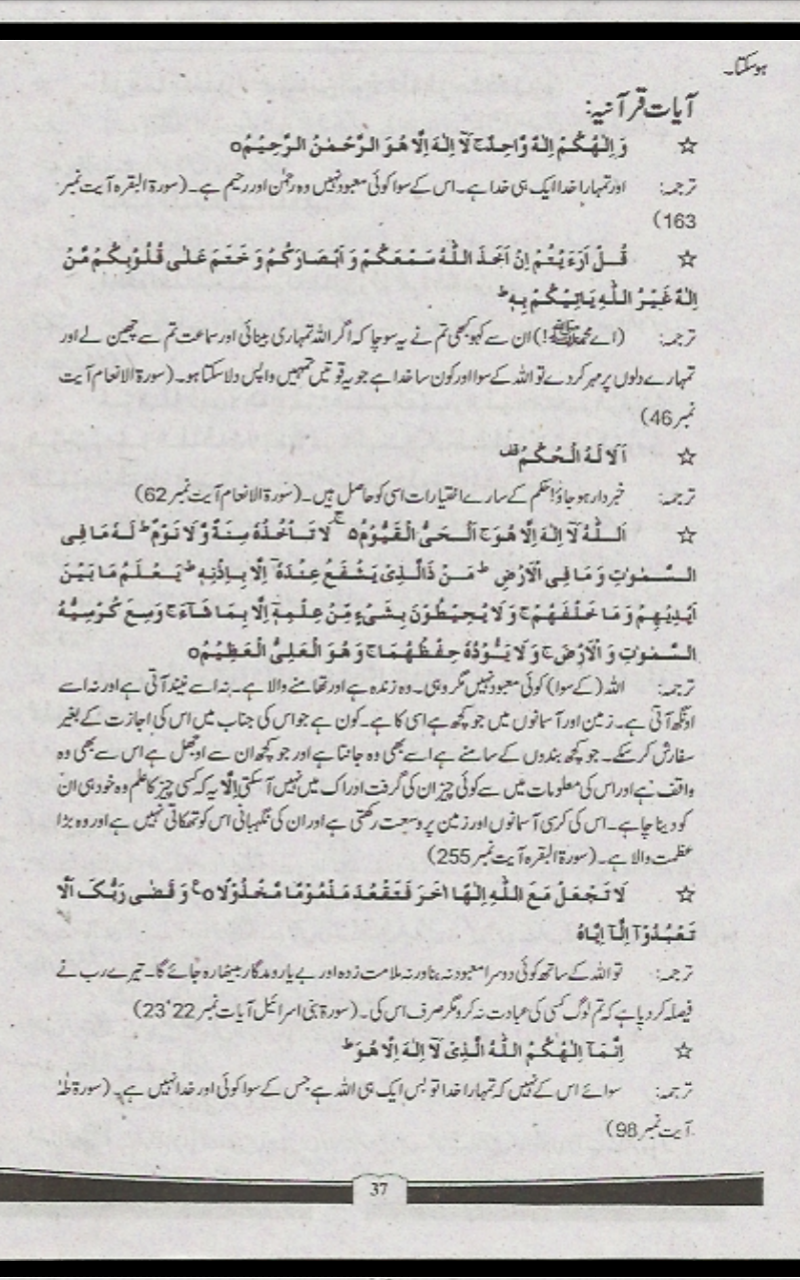 ہوسکتا۔
آیات قرآنیہ:
☆ وَاِلٰهُكُمْ اِلٰهٌ وَّاحِدٌ ج لَآ اِلٰهَ اِلَّا هُوَ الرَّحْمٰنُ الرَّحِيْمُ o
ترجمہ: اور تمہارا خدا ایک ہی خدا ہے۔ اس کے سوا کوئی معبود نہیں وہ رحمٰن اور رحیم ہے۔ (سورۃ البقرہ آیت نمبر
163)
☆ قُلْ اَرَءَيْتُمْ اِنْ اَخَذَ اللّٰهُ سَمْعَكُمْ وَ اَبْصَارَكُمْ وَ خَتَمَ عَلٰى قُلُوْبِكُمْ مَّنْ
اِلٰهٌ غَيْرُ اللّٰهِ يَاْتِيْكُمْ بِهٖ ط
ترجمہ: (اے محمد ﷺ!) ان سے کہو کبھی تم نے یہ سوچا کہ اگر اللہ تمہاری بینائی اور سماعت تم سے چھین لے اور
تمہارے دلوں پر مہر کر دے تو اللہ کے سوا اور کون سا خدا ہے جو یہ قوتیں تمہیں واپس دلا سکتا ہو۔ (سورۃ الانعام آیت
نمبر 46)
☆ اَلَا لَهُ الْحُكْمُ قف
ترجمہ: خبردار ہو جاؤ! حکم کے سارے اختیارات اسی کو حاصل ہیں۔ (سورۃ الانعام آیت نمبر 62)
☆ اَللّٰهُ لَآ اِلٰهَ اِلَّا هُوَ ج اَلْحَىُّ الْقَيُّوْمُ o ج لَا تَاْخُذُهٗ سِنَةٌ وَّلَا نَوْمٌ ط لَهٗ مَا فِى
السَّمٰوٰتِ وَ مَا فِى الْاَرْضِ ط مَنْ ذَالَّذِىْ يَشْفَعُ عِنْدَهٗٓ اِلَّا بِاِذْنِهٖ ط يَعْلَمُ مَا بَيْنَ
اَيْدِيْهِمْ وَ مَا خَلْفَهُمْ ج وَ لَا يُحِيْطُوْنَ بِشَىْءٍ مِّنْ عِلْمِهٖٓ اِلَّا بِمَا شَآءَ ج وَسِعَ كُرْسِيُّهُ
السَّمٰوٰتِ وَ الْاَرْضَ ج وَ لَا يَئُوْدُهٗ حِفْظُهُمَا ج وَ هُوَ الْعَلِىُّ الْعَظِيْمُ o
ترجمہ: اللہ (کے سوا) کوئی معبود نہیں مگر وہی۔ وہ زندہ ہے اور تھامنے والا ہے۔ نہ اسے نیند آتی ہے اور نہ اسے
اونگھ آتی ہے۔ زمین اور آسمانوں میں جو کچھ ہے اسی کا ہے۔ کون ہے جو اس کی جناب میں اس کی اجازت کے بغیر
سفارش کر سکے۔ جو کچھ بندوں کے سامنے ہے اسے بھی وہ جانتا ہے اور جو کچھ ان سے اوجھل ہے اس سے بھی وہ
واقف ہے اور اس کی معلومات میں سے کوئی چیز ان کی گرفت ادراک میں نہیں آ سکتی اِلَّا یہ کہ کسی چیز کا علم وہ خود ہی ان
کو دینا چاہے۔ اس کی کرسی آسمانوں اور زمین پر وسعت رکھتی ہے اور ان کی نگہبانی اس کو تھکاتی نہیں ہے اور وہ بڑا
عظمت والا ہے۔ (سورۃ البقرہ آیت نمبر 255)
☆ لَا تَجْعَلْ مَعَ اللّٰهِ اِلٰهًا اٰخَرَ فَتَقْعُدَ مَذْمُوْمًا مَّخْذُوْلًا o ع وَ قَضٰى رَبُّكَ اَلَّا
تَعْبُدُوْٓا اِلَّآ اِيَّاهُ
ترجمہ: تو اللہ کے ساتھ کوئی دوسرا معبود نہ بنا ورنہ ملامت زدہ اور بے یارومددگار بیٹھا رہ جائے گا۔ تیرے رب نے
فیصلہ کر دیا ہے کہ تم لوگ کسی کی عبادت نہ کرو مگر صرف اس کی۔ (سورۃ بنی اسرائیل آیات نمبر 22‘23)
☆ اِنَّمَآ اِلٰهُكُمُ اللّٰهُ الَّذِىْ لَآ اِلٰهَ اِلَّا هُوَ ط
ترجمہ: سوائے اس کے نہیں کہ تمہارا خدا تو بس ایک ہی اللہ ہے جس کے سوا کوئی اور خدا نہیں ہے۔ (سورۃ طٰہٰ
آیت نمبر 98)
37